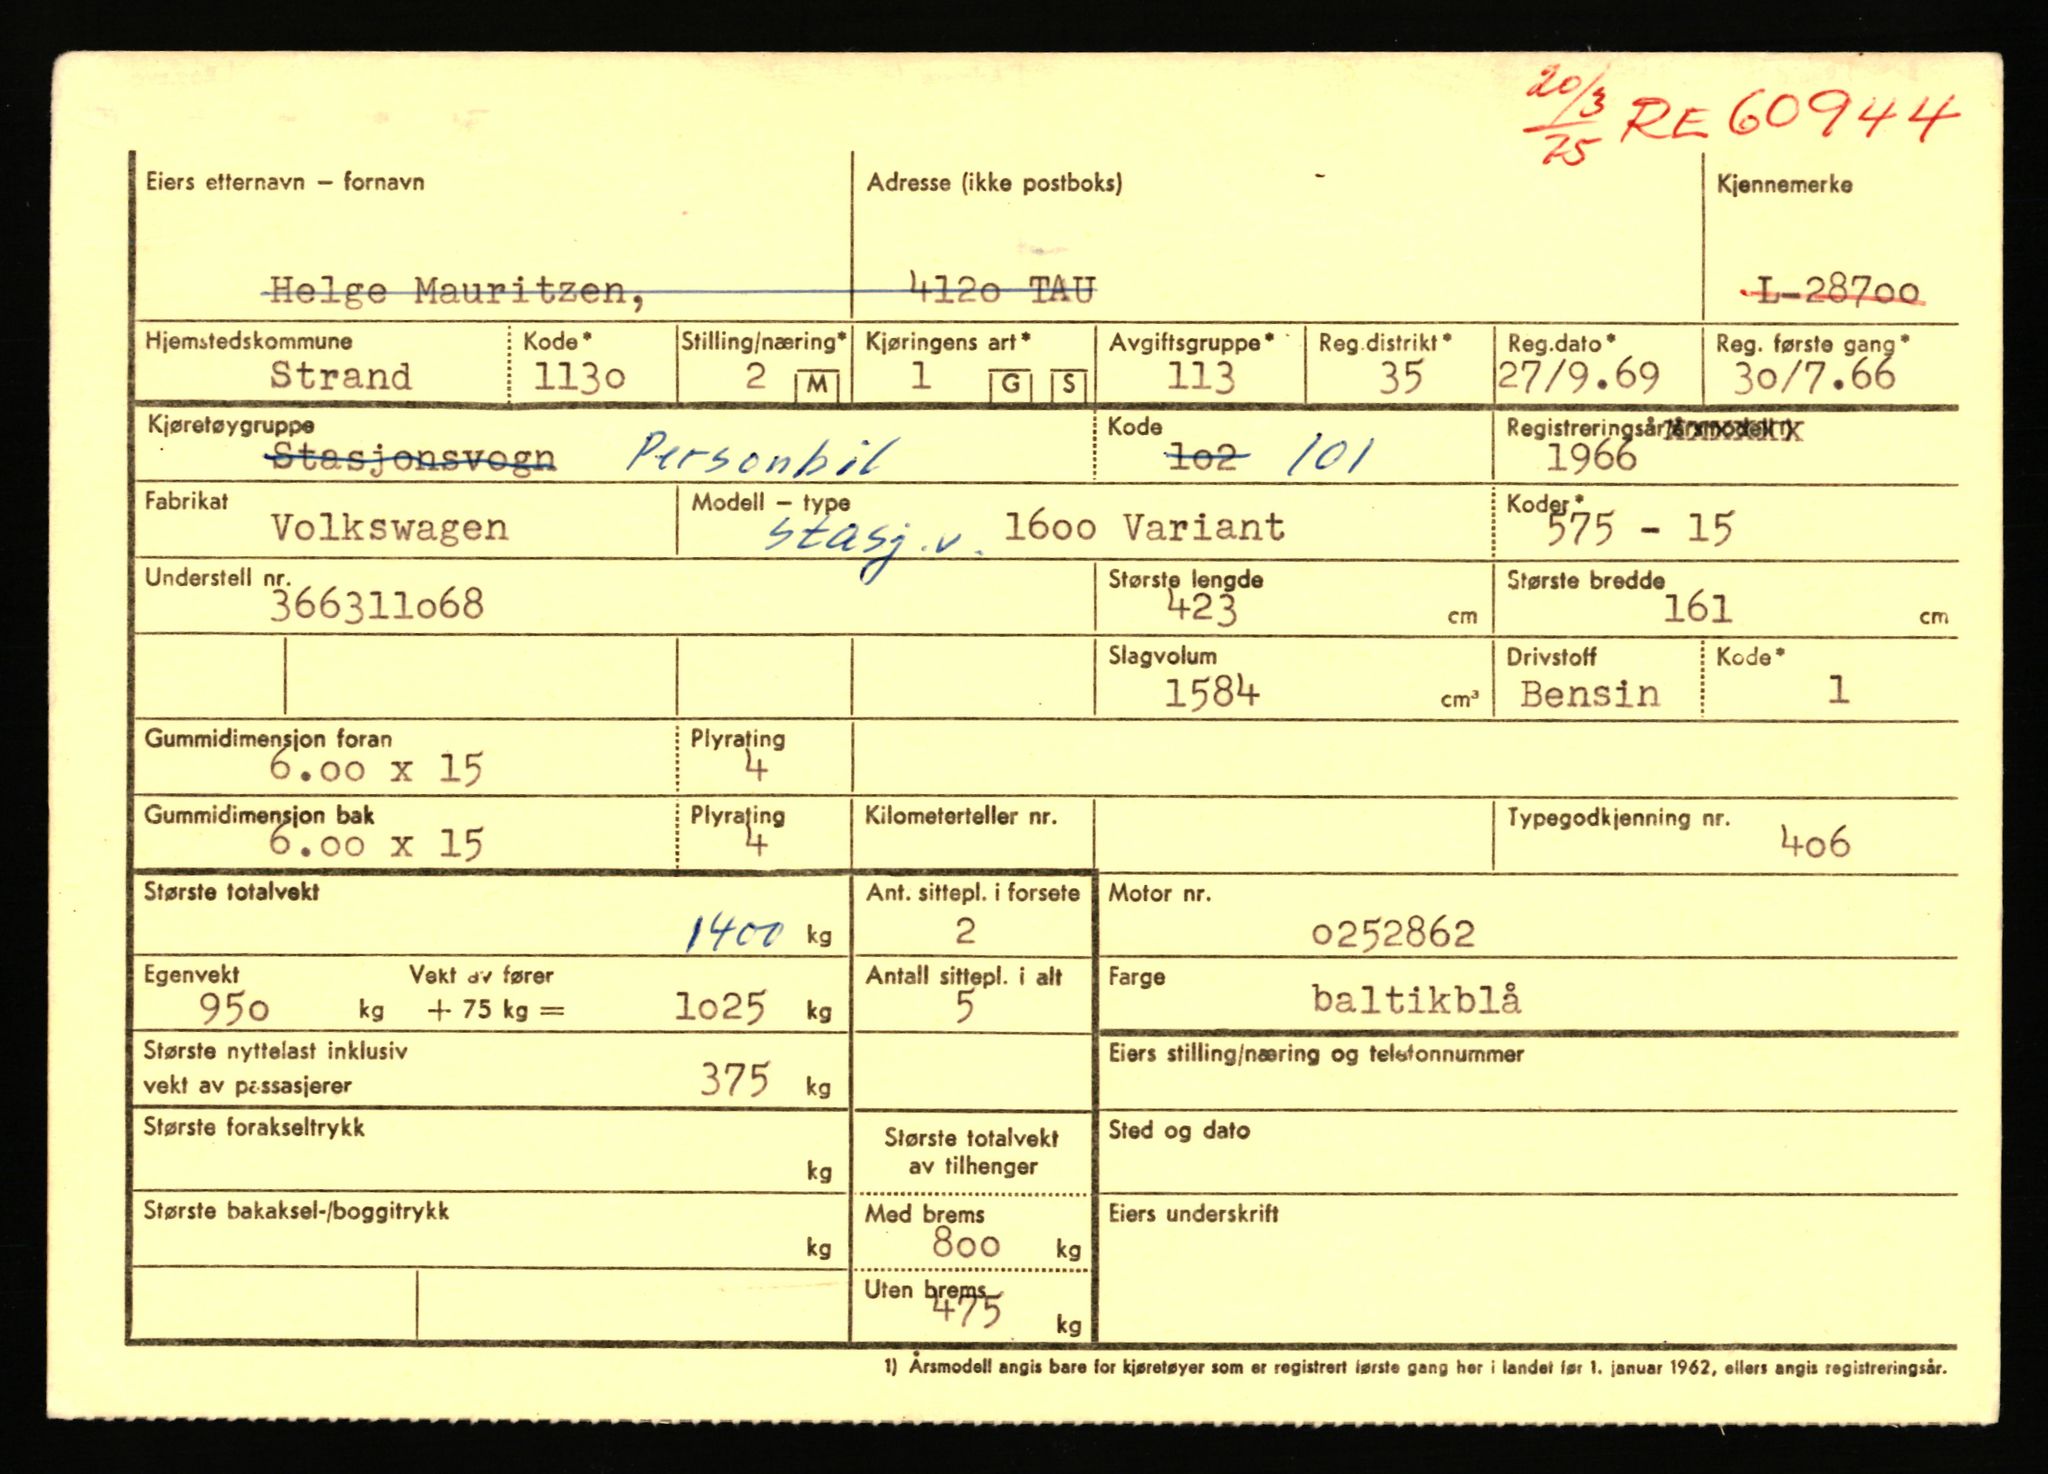 20/3 75 RE 60944
Eiers etternavn – fornavn Adresse (ikke postboks) Kjennemerke
Helge Mauritzen, 4120 TAU L-28700
Hjemstedskommune Kode* Stilling/næring* Kjøringens art* Avgiftsgruppe* Reg.distrikt* Reg.dato* Reg. første gang*
Strand 1130 2 M 1 G S 113 35 27/9.69 30/7.66
Kjøretøygruppe Kode Registreringsår/årsmodell 1)
Stasjonsvogn Personbil 102 101 1966
Fabrikat Modell – type Koder*
Volkswagen stasj.v. 1600 Variant 575 - 15
Understell nr. Største lengde Største bredde
366311068 423 cm 161 cm
Slagvolum Drivstoff Kode*
1584 cm³ Bensin 1
Gummidimensjon foran Plyrating
6.00 x 15 4
Gummidimensjon bak Plyrating Kilometerteller nr. Typegodkjenning nr.
6.00 x 15 4 406
Største totalvekt Ant. sittepl. i forsete Motor nr.
1400 kg 2 0252862
Egenvekt Vekt av fører Antall sittepl. i alt Farge
950 kg + 75 kg = 1025 kg 5 baltikblå
Største nyttelast inklusiv Eiers stilling/næring og telefonnummer
vekt av passasjerer 375 kg
Største forakseltrykk Største totalvekt Sted og dato
kg av tilhenger
Største bakaksel-/boggitrykk Med brems Eiers underskrift
kg 800 kg
Uten brems
475 kg
1) Årsmodell angis bare for kjøretøyer som er registrert første gang her i landet før 1. januar 1962, ellers angis registreringsår.